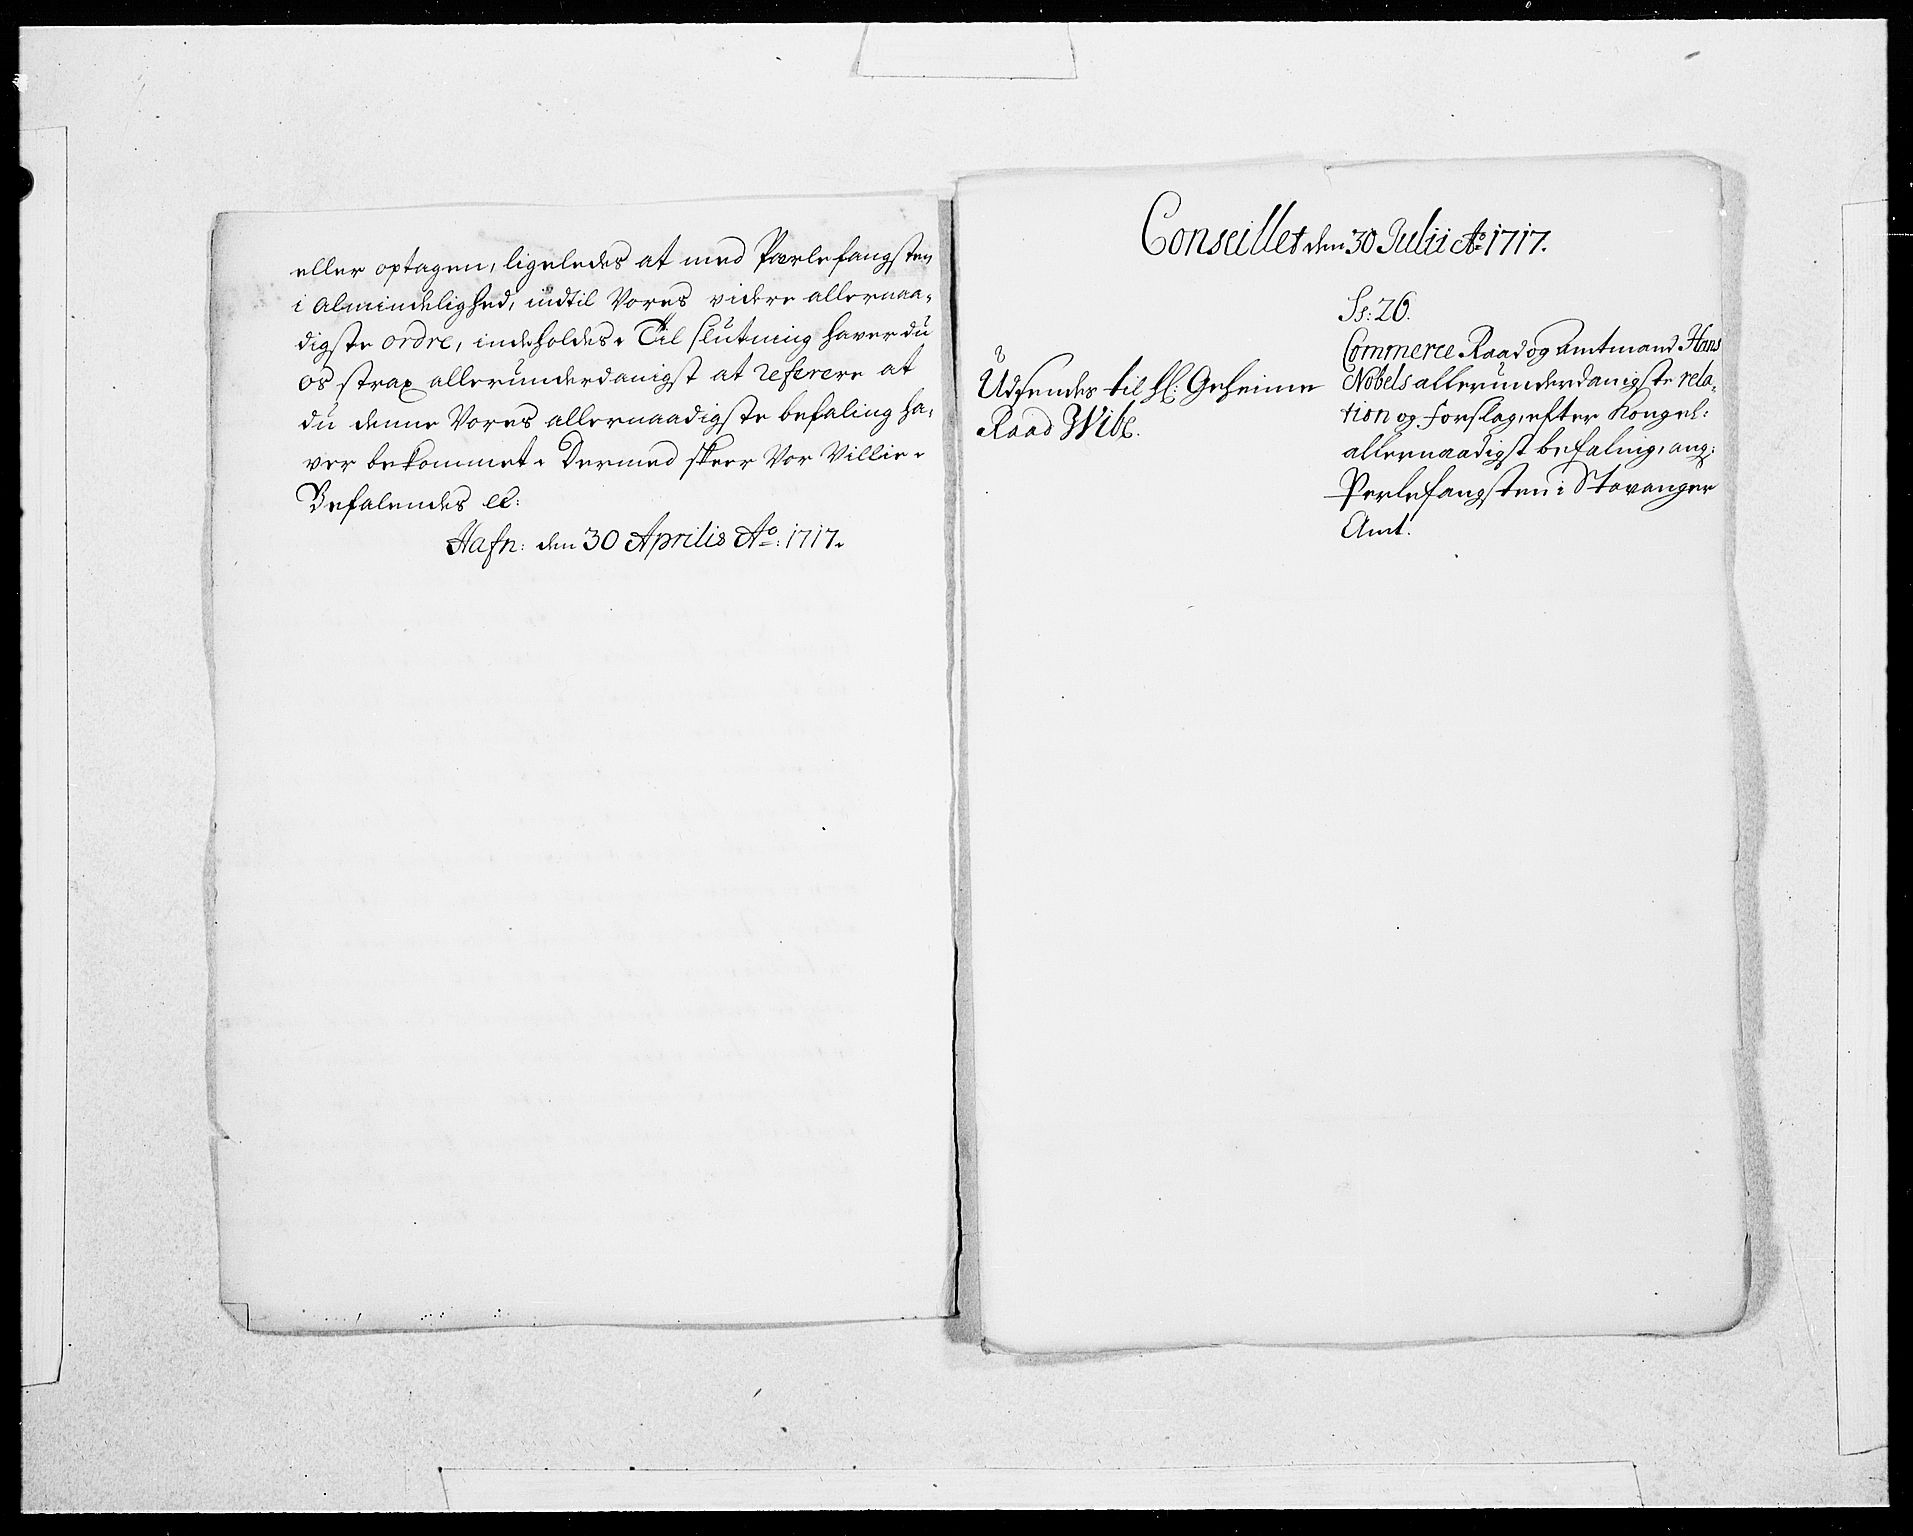 eller optagen, ligeledes at med Perlefangsten
i Almindelighed, indtil Vores videre allernaa-
digste ordre, indeholdes. Til slutning haver du
os strax allerunderdanigst at referere at
du denne Vores allernaadigste befaling ha-
ver bekommet. Dermed skeer Vor Villie.
Befalendes ec:
Hafn: den 30 Aprilis Ao: 1717.
Conseillet den 30 Julii Ao 1717.
Udsendes til H: Geheime
Raad Wibe.
Ss: 26.
Commerce Raad og Amtmand Hans
Nobels allerunderdanigste rela-
tion og Forslag, efter Kongel:
allernaadigst befaling, ang:
Perlefangsten i Stavanger
Amt.